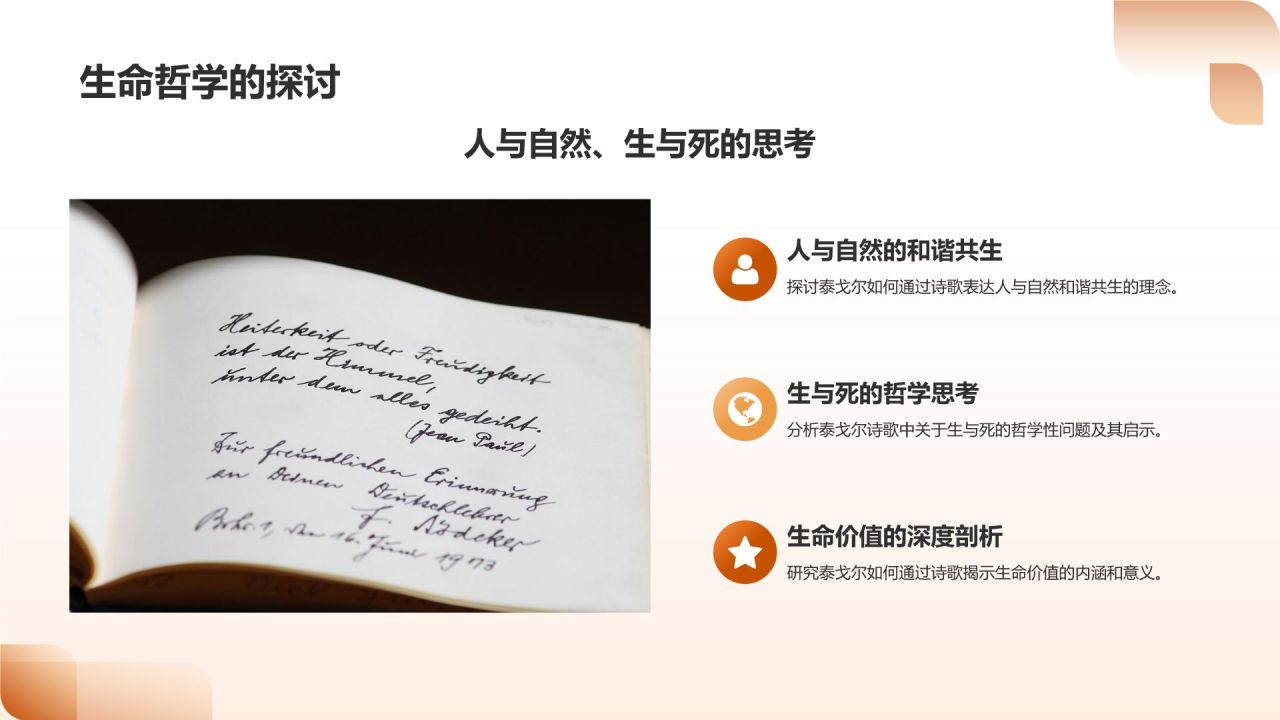 生命哲学的探讨
人与自然、生与死的思考
Heiterkeit oder Freudigkeit
ist der Himmel,
unter dem alles gedeiht.
(Jean Paul)
Zur freundlichen Erinnerung
an Deinen Deutschlehrer
F. Rödeker
den 16. Juni 1973
人与自然的和谐共生
探讨泰戈尔如何通过诗歌表达人与自然和谐共生的理念。
生与死的哲学思考
分析泰戈尔诗歌中关于生与死的哲学性问题及其启示。
生命价值的深度剖析
研究泰戈尔如何通过诗歌揭示生命价值的内涵和意义。